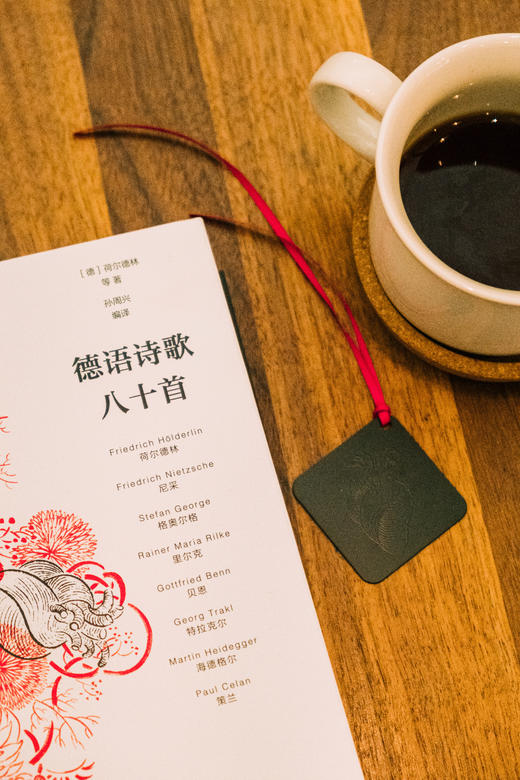 [德] 荷尔德林
等 著
孙周兴
编译
德语诗歌
八十首
Friedrich Hölderlin
荷尔德林
Friedrich Nietzsche
尼采
Stefan George
格奥尔格
Rainer Maria Rilke
里尔克
Gottfried Benn
贝恩
Georg Trakl
特拉克尔
Martin Heidegger
海德格尔
Paul Celan
策兰